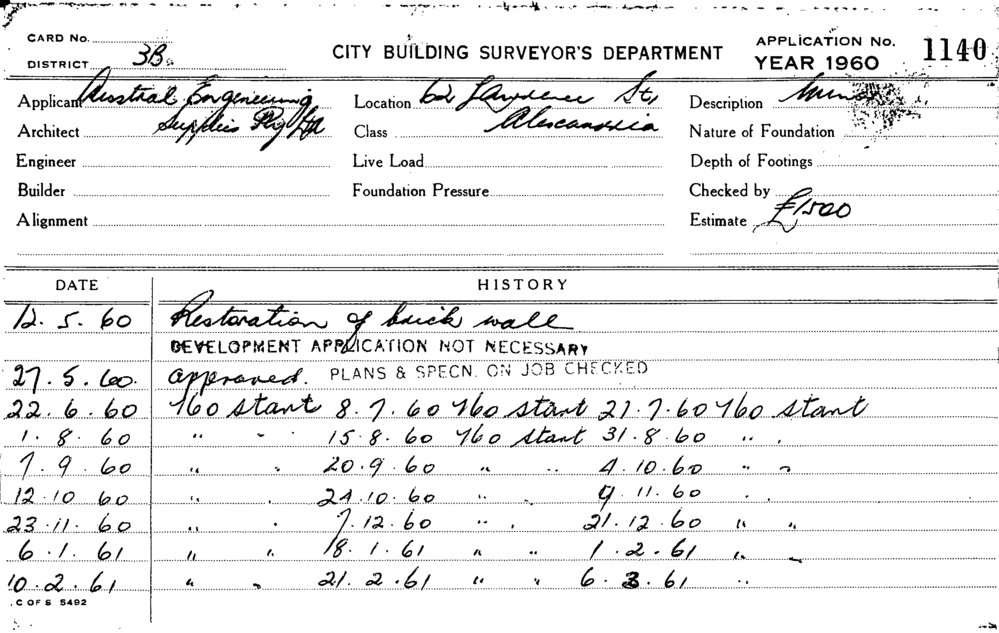 CARD No.
DISTRICT 3B.
CITY BUILDING SURVEYOR'S DEPARTMENT
APPLICATION No. 1140
YEAR 1960
Applicant Austral Engineering Location 62 Lawrence St, Description
Architect Supplies Pty Ltd Class Alexandria Nature of Foundation
Engineer Live Load Depth of Footings
Builder Foundation Pressure Checked by
Alignment Estimate £1500
DATE HISTORY
12. 5. 60 Restoration of brick wall
DEVELOPMENT APPLICATION NOT NECESSARY
27. 5. 60. approved. PLANS & SPECN. ON JOB CHECKED
22. 6. 60 No start 8. 7. 60 No start 21. 7. 60 No start
1. 8. 60 " " 15. 8. 60 No start 31. 8. 60 " "
7. 9. 60 " " 20. 9. 60 " " 4. 10. 60 " "
12. 10 60 " " 24. 10. 60 " " 9. 11. 60 " "
23. 11. 60 " " 7. 12. 60 " " 21. 12. 60 " "
6. 1. 61 " " 18. 1. 61 " " 1. 2. 61 " "
10. 2. 61 " " 21. 2. 61 " " 6. 3. 61 "
C OF S 5492